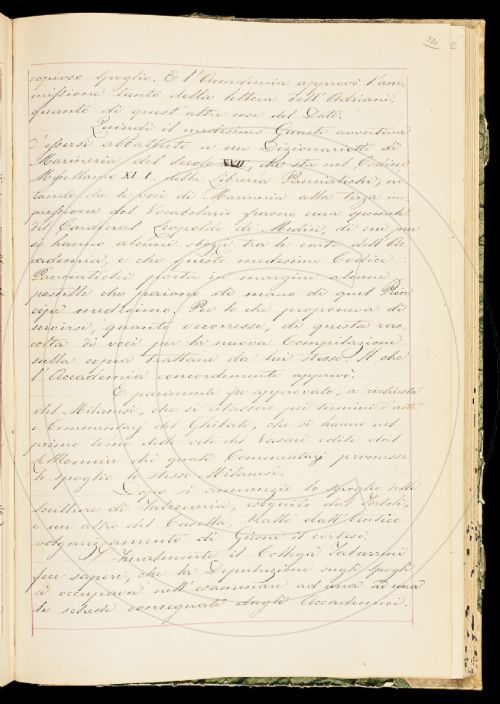 copioso spoglio. E l'Accademia approvò l'am
missione tanto della lettera dell'Adriani,
quanto di quest'altre cose del Dati.
Quindi il medesimo Guasti avvertiva
d'essersi abbattuto a un Dizionarietto di
Marineria del Secolo XVII, che sta nel Codice
della Libreria Panciatichi, no
tando che le voci di Marineria alla terza im
pressione del Vocabolario furono cura speciale
del Cardinal Leopoldo de Medici, di cui pur
si hanno alcuni sfogi tra le carte dell'Ac
cademia, e che questo medesimo Codice
Panciatichi porta in margine alcune
postille che paiono di mano di quel Prin
cipe medesimo. Per lo che proponeva di
servirsi, quanto occorresse, di questa rac
colta di voci per la nuova Compilazione
sulla copia trattane da lui stesso. Il che
l'Accademia concordemente approvò.
E parimente fu approvato, a richiesta
del Milanesi, che si citassero pei termini d'arte
i Commentarj del Ghiberti, che si hanno nel
primo tomo delle vite del Vasari edite dal
LeMonnier dei quali Commentarj promesse
lo spoglio lo stesso Milanesi.
Dopo si annunziò lo spoglio delle
scritture di Valcenni, eseguito dal
e un altro del Casella, tratto dall'antico
volgarizzamento di Girone il cortese.
Finalmente il Collega Tabarrini
fece sapere, che la Deputazione sugli spogli
si occupava nell'esaminare ad una ad una
le schede consegnate dagli Accademici.